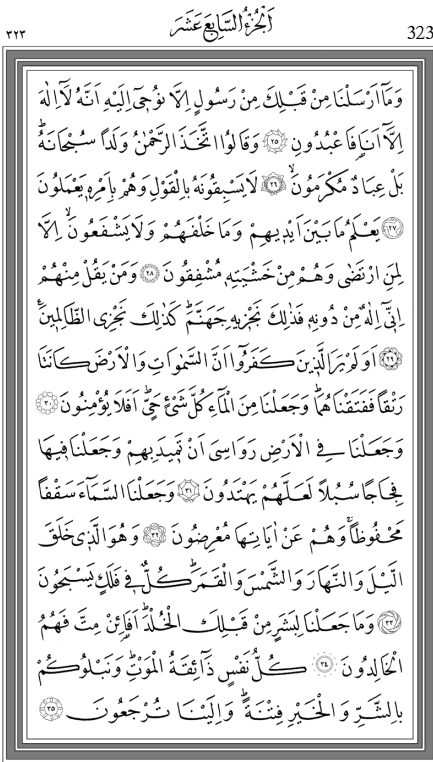 ٣٢٣ اَلْجُزْءُ السَّابِعَ عَشَرَ 323
وَمَٓا اَرْسَلْنَا مِنْ قَبْلِكَ مِنْ رَسُولٍ اِلَّا نُوحٖٓى اِلَيْهِ اَنَّهُ لَٓا اِلٰهَ
اِلَّٓا اَنَا۬ فَاعْبُدُونِ ﴿٢٥﴾ وَقَالُوا اتَّخَذَ الرَّحْمٰنُ وَلَداً سُبْحَانَهُؕ
بَلْ عِبَادٌ مُكْرَمُونَۙ ﴿٢٦﴾ لَا يَسْبِقُونَهُ بِالْقَوْلِ وَهُمْ بِاَمْرِهٖ يَعْمَلُونَ
﴿٢٧﴾ يَعْلَمُ مَا بَيْنَ اَيْدٖيهِمْ وَمَا خَلْفَهُمْ وَلَا يَشْفَعُونَۙ اِلَّا
لِمَنِ ارْتَضٰى وَهُمْ مِنْ خَشْيَتِهٖ مُشْفِقُونَ ﴿٢٨﴾ وَمَنْ يَقُلْ مِنْهُمْ
اِنّٖٓى اِلٰهٌ مِنْ دُونِهٖ فَذٰلِكَ نَجْزٖيهِ جَهَنَّمَؕ كَذٰلِكَ نَجْزِى الظَّالِمٖينَ۟
﴿٢٩﴾ اَوَلَمْ يَرَ الَّذٖينَ كَفَرُٓوا اَنَّ السَّمٰوَاتِ وَالْاَرْضَ كَانَتَا
رَتْقاً فَفَتَقْنَاهُمَاؕ وَجَعَلْنَا مِنَ الْمَٓاءِ كُلَّ شَىْءٍ حَىٍّؕ اَفَلَا يُؤْمِنُونَ ﴿٣٠﴾
وَجَعَلْنَا فِى الْاَرْضِ رَوَاسِىَ اَنْ تَمٖيدَ بِهِمْ وَجَعَلْنَا فٖيهَا
فِجَاجاً سُبُلاً لَعَلَّهُمْ يَهْتَدُونَ ﴿٣١﴾ وَجَعَلْنَا السَّمَٓاءَ سَقْفاً
مَحْفُوظاًۚ وَهُمْ عَنْ اٰيَاتِهَا مُعْرِضُونَ ﴿٣٢﴾ وَهُوَ الَّذٖى خَلَقَ
الَّيْلَ وَالنَّهَارَ وَالشَّمْسَ وَالْقَمَرَؕ كُلٌّ فٖى فَلَكٍ يَسْبَحُونَ
﴿٣٣﴾ وَمَا جَعَلْنَا لِبَشَرٍ مِنْ قَبْلِكَ الْخُلْدَؕ اَفَا۬ئِنْ مِتَّ فَهُمُ
الْخَالِدُونَ ﴿٣٤﴾ كُلُّ نَفْسٍ ذَٓائِقَةُ الْمَوْتِؕ وَنَبْلُوكُمْ
بِالشَّرِّ وَالْخَيْرِ فِتْنَةًؕ وَاِلَيْنَا تُرْجَعُونَ ﴿٣٥﴾